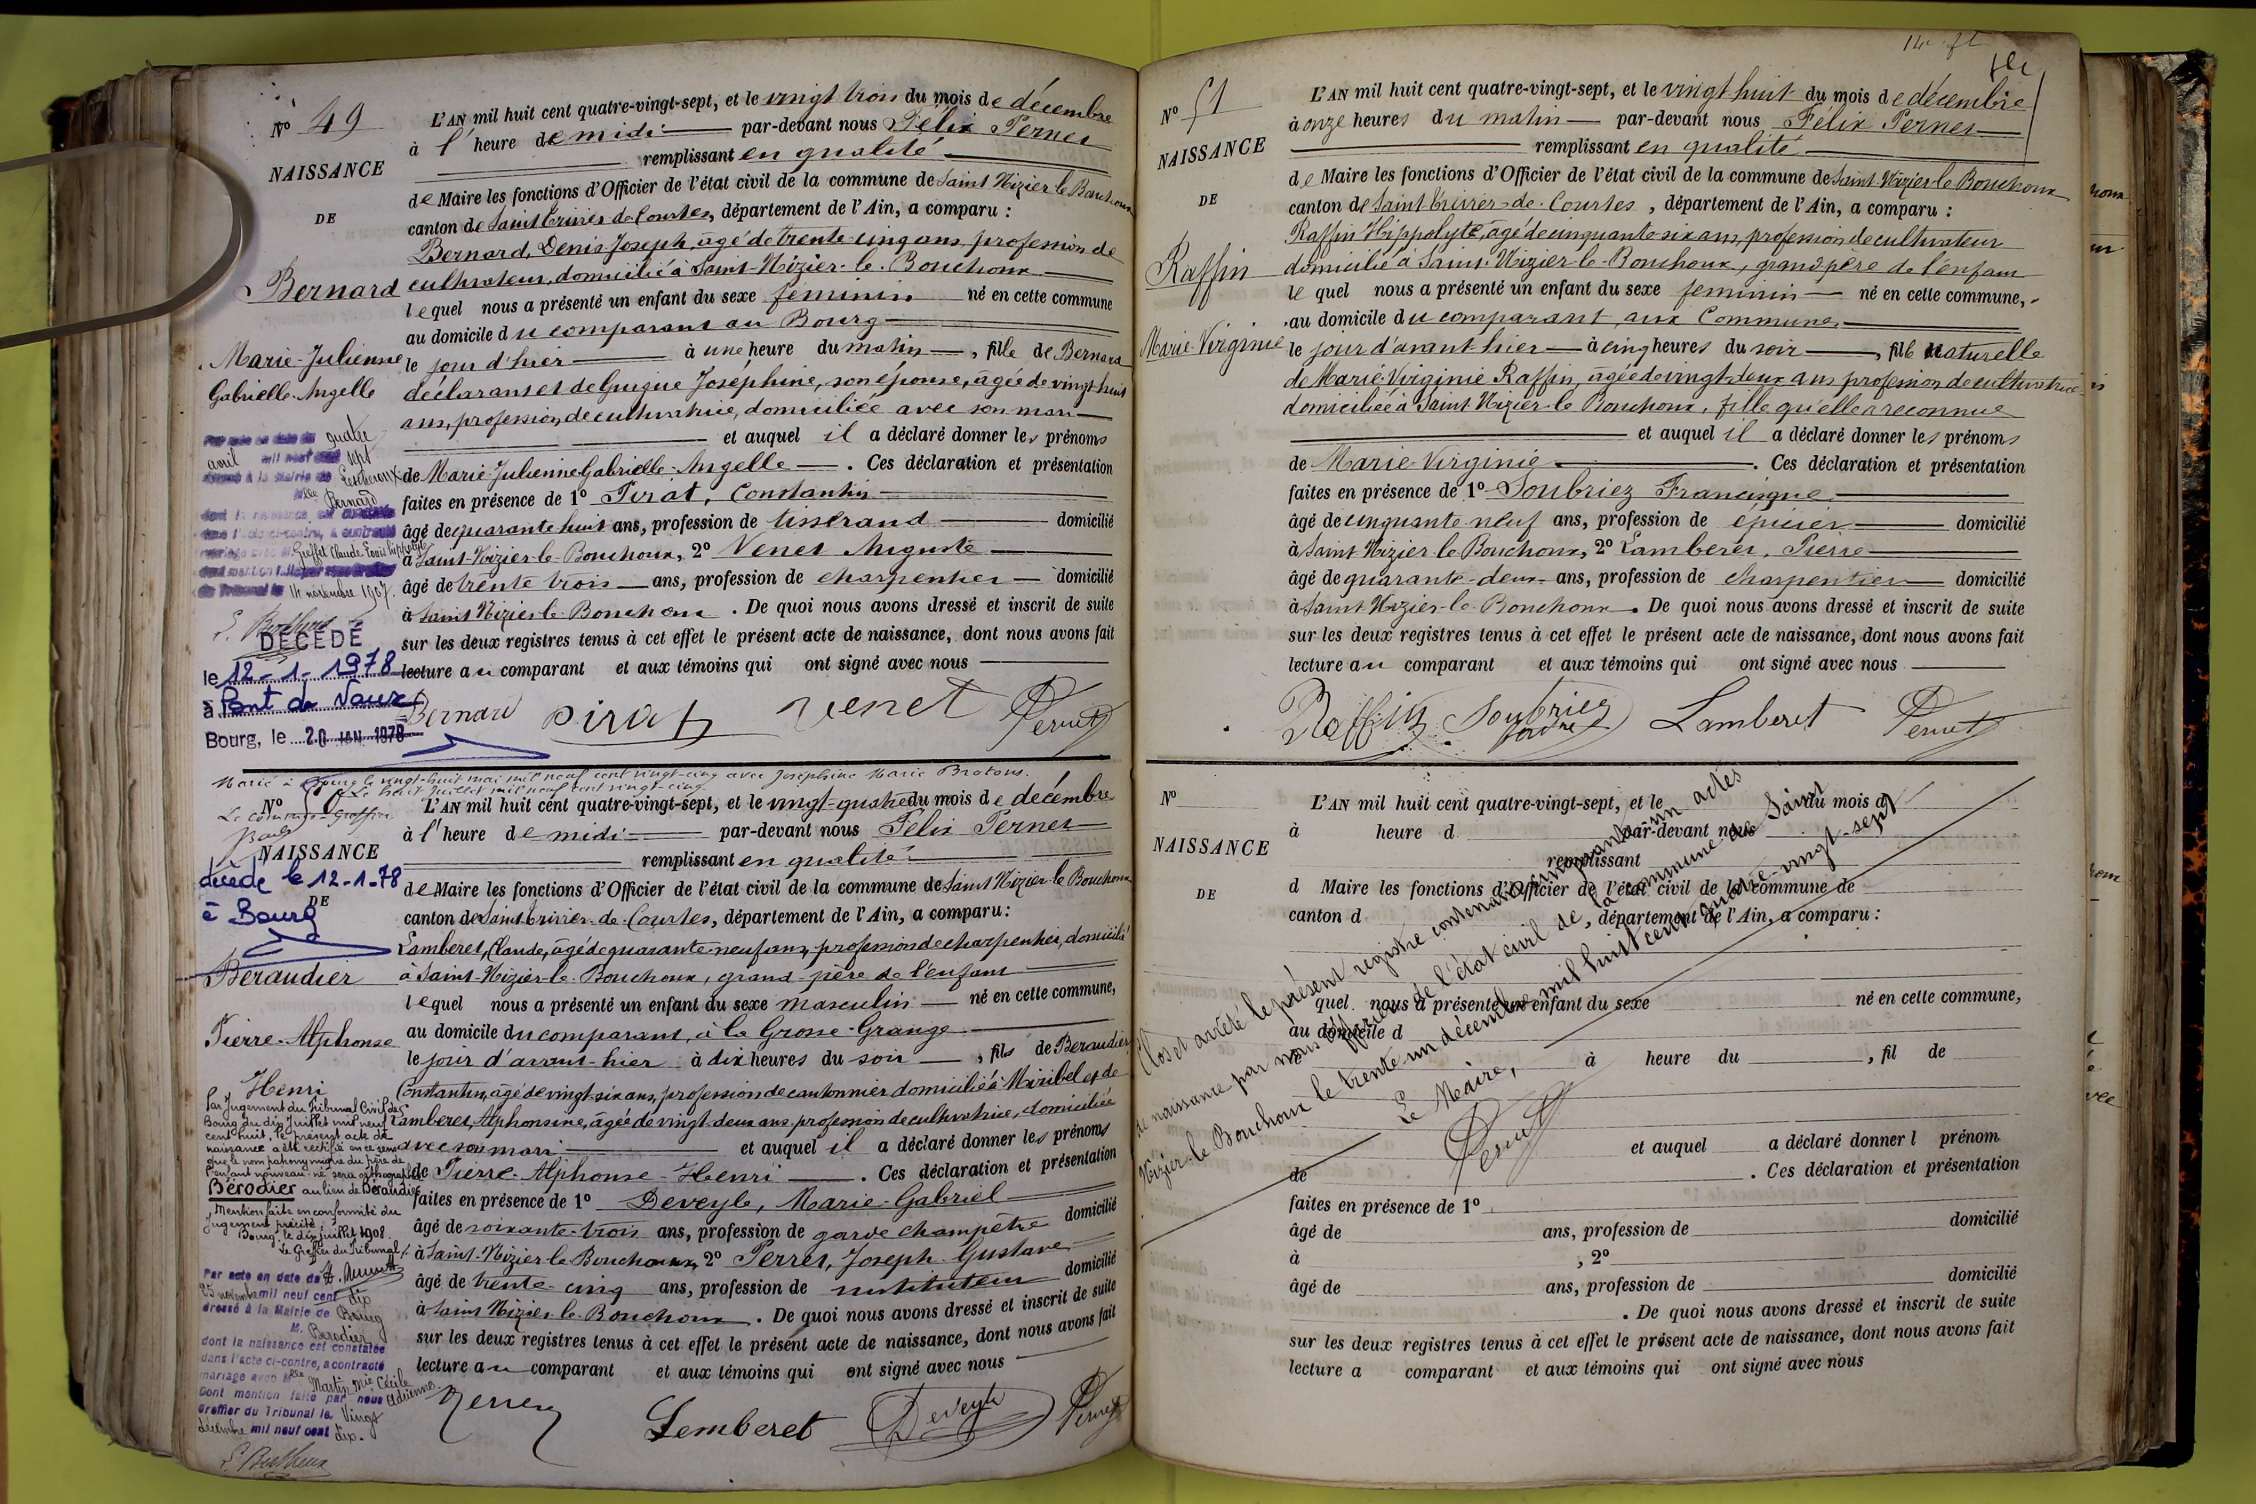 Nº 49
NAISSANCE
DE
Bernard
Marie-Julienne
Gabrielle-Angelle
quatre
avril sept
Lescheroux
Mlle Bernard
Greffet Claude Louis Hippolyte
14 novembre 1907.
DÉCÉDÉ
le 12-1-1978
à Pont de Vaux
Bourg, le 20 JAN 1978
L'AN mil huit cent quatre-vingt-sept, et le vingt trois du mois de décembre
à l'heure de midi par-devant nous Félix Pernet
remplissant en qualité
de Maire les fonctions d'Officier de l'état civil de la commune de Saint Nizier le Bouchoux
canton de Saint Trivier de Courtes, département de l'Ain, a comparu :
Bernard, Denis Joseph, âgé de trente cinq ans, profession de
cultivateur, domicilié à Saint-Nizier-le-Bouchoux
lequel nous a présenté un enfant du sexe féminin né en cette commune
au domicile du comparant au Bourg
le jour d'hier à une heure du matin, fille de Bernard
déclarant et de Guigue Joséphine, son épouse, âgée de vingt-huit
ans, profession de cultivatrice, domiciliée avec son mari
et auquel il a déclaré donner les prénoms
de Marie Julienne Gabrielle-Angelle. Ces déclaration et présentation
faites en présence de 1º Pirat, Constantin
âgé de quarante huit ans, profession de tisserand domicilié
à Saint-Nizier-le-Bouchoux, 2º Venet Auguste
âgé de trente trois ans, profession de charpentier domicilié
à Saint Nizier-le-Bouchoux. De quoi nous avons dressé et inscrit de suite
sur les deux registres tenus à cet effet le présent acte de naissance, dont nous avons fait
lecture au comparant et aux témoins qui ont signé avec nous
Bernard Pirat Venet Pernet
Marié à Bourg le vingt-huit mai mil neuf cent vingt-cinq avec Joséphine Marie Brotons.
Le huit juillet mil neuf cent vingt-cinq
Le commis-Greffier
Nº 50
NAISSANCE
DE
décédé le 12-1-78
à Bourg
Beraudier
Pierre-Alphonse
Henri
Par jugement du Tribunal Civil de
Bourg du dix Juillet mil neuf
cent huit, le présent acte de
naissance a été rectifié en ce sens
que le nom patronymique du père de
l'enfant nouveau-né sera orthographié
Bérodier au lieu de Béraudier
Mention faite en conformité du
jugement précité.
Bourg le dix juillet 1908.
Le Greffier du Tribunal
Par acte en date du
25 novembre mil neuf cent dix
dressé à la Mairie de Bourg
M. Berodier
dont la naissance est constatée
dans l'acte ci-contre, a contracté
mariage avec Mlle Martin Mie Cécile
Adrienne
Dont mention faite par nous
Greffier du Tribunal le Vingt
décembre mil neuf cent dix.
L'AN mil huit cent quatre-vingt-sept, et le vingt-quatre du mois de décembre
à l'heure de midi par-devant nous Félix Pernet
remplissant en qualité
de Maire les fonctions d'Officier de l'état civil de la commune de Saint Nizier le Bouchoux
canton de Saint Trivier-de-Courtes, département de l'Ain, a comparu :
Lamberet, Claude, âgé de quarante-neuf ans, profession de charpentier, domicilié
à Saint-Nizier-le-Bouchoux, grand-père de l'enfant
lequel nous a présenté un enfant du sexe masculin né en cette commune,
au domicile du comparant, à la Grosse-Grange
le jour d'avant-hier à dix heures du soir, fils de Beraudier
Constantin, âgé de vingt-six ans, profession de cantonnier domicilié à Miribel et de
Lamberet, Alphonsine, âgée de vingt-deux ans profession de cultivatrice, domiciliée
avec son mari et auquel il a déclaré donner les prénoms
de Pierre-Alphonse-Henri. Ces déclaration et présentation
faites en présence de 1º Deveyle, Marie-Gabriel
âgé de soixante-trois ans, profession de garde champêtre domicilié
à Saint-Nizier le Bouchoux, 2º Perret, Joseph-Gustave
âgé de trente-cinq ans, profession de instituteur domicilié
à Saint Nizier-le-Bouchoux. De quoi nous avons dressé et inscrit de suite
sur les deux registres tenus à cet effet le présent acte de naissance, dont nous avons fait
lecture au comparant et aux témoins qui ont signé avec nous
Lemberet Deveyle Pernet
Nº 51
NAISSANCE
DE
Raffin
Marie-Virginie
L'AN mil huit cent quatre-vingt-sept, et le vingt huit du mois de décembre
à onze heures du matin par-devant nous Félix Pernet
remplissant en qualité
de Maire les fonctions d'Officier de l'état civil de la commune de Saint-Nizier-le-Bouchoux
canton de Saint Trivier-de-Courtes, département de l'Ain, a comparu :
Raffin Hippolyte, âgé de cinquante six ans, profession de cultivateur
domicilié à Saint-Nizier-le-Bouchoux, grand père de l'enfant
lequel nous a présenté un enfant du sexe féminin né en cette commune,
au domicile du comparant, aux Communes
le jour d'avant hier à cinq heures du soir, fille naturelle
de Marie-Virginie Raffin, âgée de vingt-deux ans profession de cultivatrice
domiciliée à Saint Nizier-le Bouchoux, fille qu'elle a reconnue
et auquel il a déclaré donner les prénoms
de Marie-Virginie. Ces déclaration et présentation
faites en présence de 1º Soubriez Francisque
âgé de cinquante-neuf ans, profession de épicier domicilié
à Saint Nizier-le-Bouchoux, 2º Lamberet, Pierre
âgé de quarante-deux ans, profession de charpentier domicilié
à Saint-Nizier-le-Bouchoux. De quoi nous avons dressé et inscrit de suite
sur les deux registres tenus à cet effet le présent acte de naissance, dont nous avons fait
lecture au comparant et aux témoins qui ont signé avec nous
Raffin Soubriez Lamberet Pernet
Nº
NAISSANCE
DE
L'AN mil huit cent quatre-vingt-sept, et le du mois d
à heure d par-devant nous
remplissant
d Maire les fonctions d'Officier de l'état civil de la commune de
canton d , département de l'Ain, a comparu :
quel nous a présenté un enfant du sexe né en cette commune,
au domicile d
le à heure du , fil de
et auquel a déclaré donner l prénom
de . Ces déclaration et présentation
faites en présence de 1º
âgé de ans, profession de domicilié
à , 2º
âgé de ans, profession de domicilié
. De quoi nous avons dressé et inscrit de suite
sur les deux registres tenus à cet effet le présent acte de naissance, dont nous avons fait
lecture a comparant et aux témoins qui ont signé avec nous
Clos et arrêté le présent registre contenant cinquante-un actes
de naissance par nous Officier de l'état civil de la commune de Saint
Nizier-le Bouchoux le trente un décembre mil huit cent quatre-vingt-sept
Le Maire,
Pernet